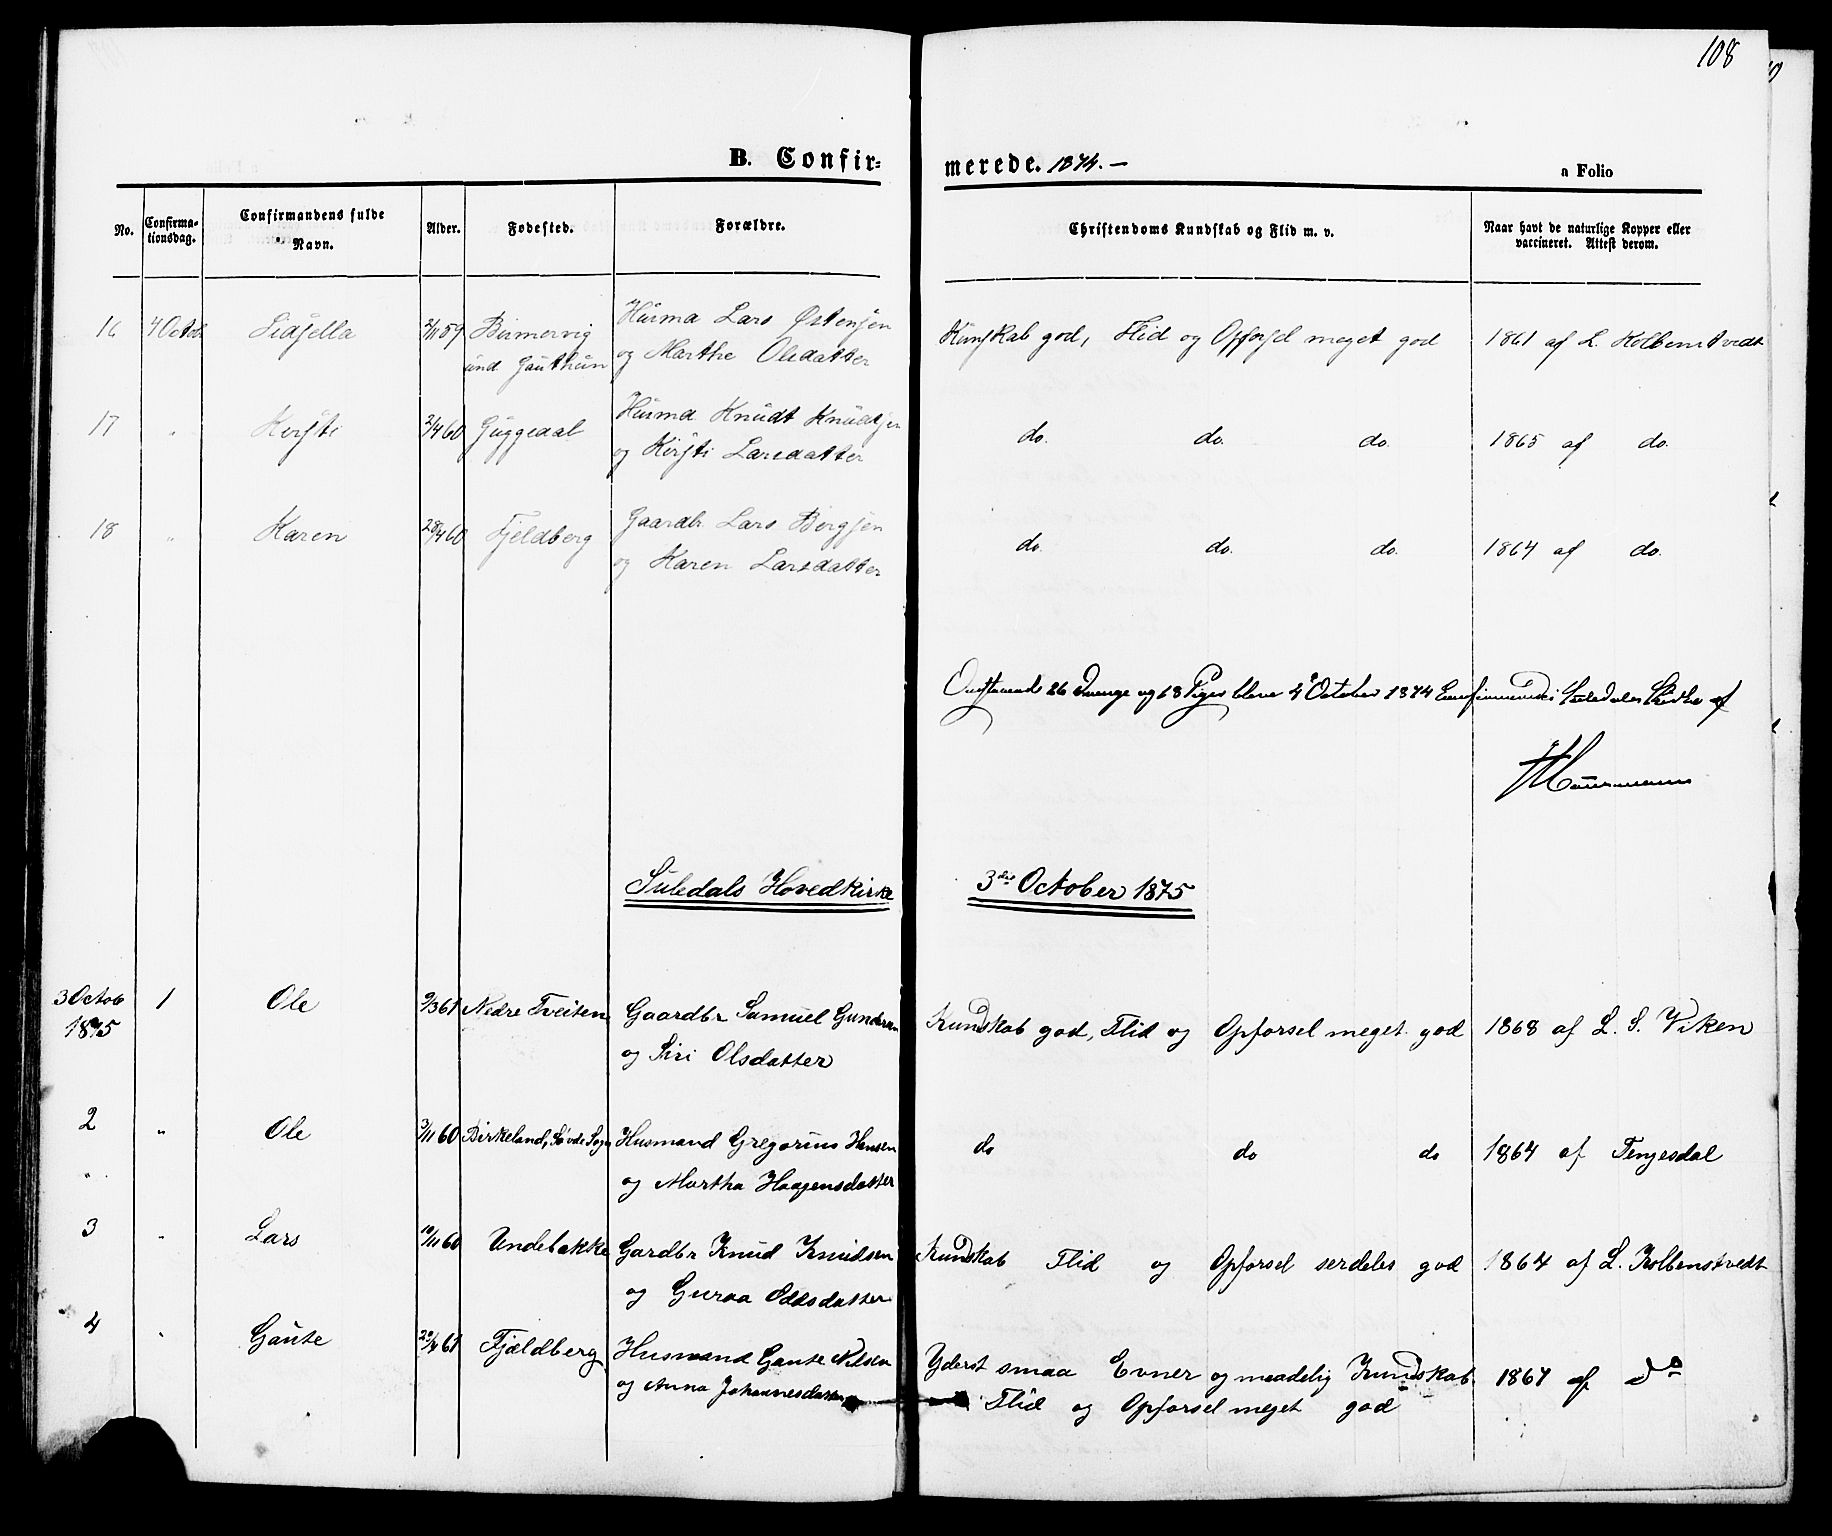 108
B. Confir-
merede. 1874. –
a Folio
No.
Confirma-
tionsdag.
Confirmandens fulde
Navn.
Alder.
Fødested.
Forældre.
Christendoms Kundskab og Flid m. v.
Naar havt de naturlige Kopper eller
vaccineret. Attest derom.
16 4 Octob Sidsella 2/11 59 Husma Lars Østensen
und Gauthun og Marthe Olsdatter
Kunskab god, Flid og Opførsel meget god 1861 af L. Kolbenstvedt
17 " Kirsti 2/4 60 Guggedal Husmd Knudt Knudtsen
og Kirsti Larsdatter
do. do. do. 1865 af do.
18 " Karen 28/4 60 Fjeldberg Gaardbr. Lars
og Karen Larsdatter
do. do. do. 1864 af do.
Ovstaaende 26 Drenge og 18 Piger bleve 4de October 1874 Confirmerede i Suledals Kirke af
Suledals Hovedkirke 3die October 1875
3 Octob 1 Ole 9/3 61 Nedre Tveiten Gaardbr Samuel Gundersen
1875 og Siri Olsdatter
Kundskab god, Flid og Opførsel meget god 1868 af L. S. Viken
2 " Ole 3/11 60 Birkeland, Søvde Sogn Husmand Gregorius Hansen
" og Martha Haagensdatter
do do do 1864 af Tengesdal
3 " Lars 10/11 60 Undebakke Gardbr Knud Knudsen
og Guroa Oddsdatter
Kundskab Flid og Opførsel serdeles god 1864 af L. Kolbenstvedt
4 " Gaute 20/4 61 Fjældberg Husmand Gaute Nilsen
og Anna Johannesdatter
Yderst smaa Evner og maadelig Kundskab 1867 af do
Flid og Opførsel meget god